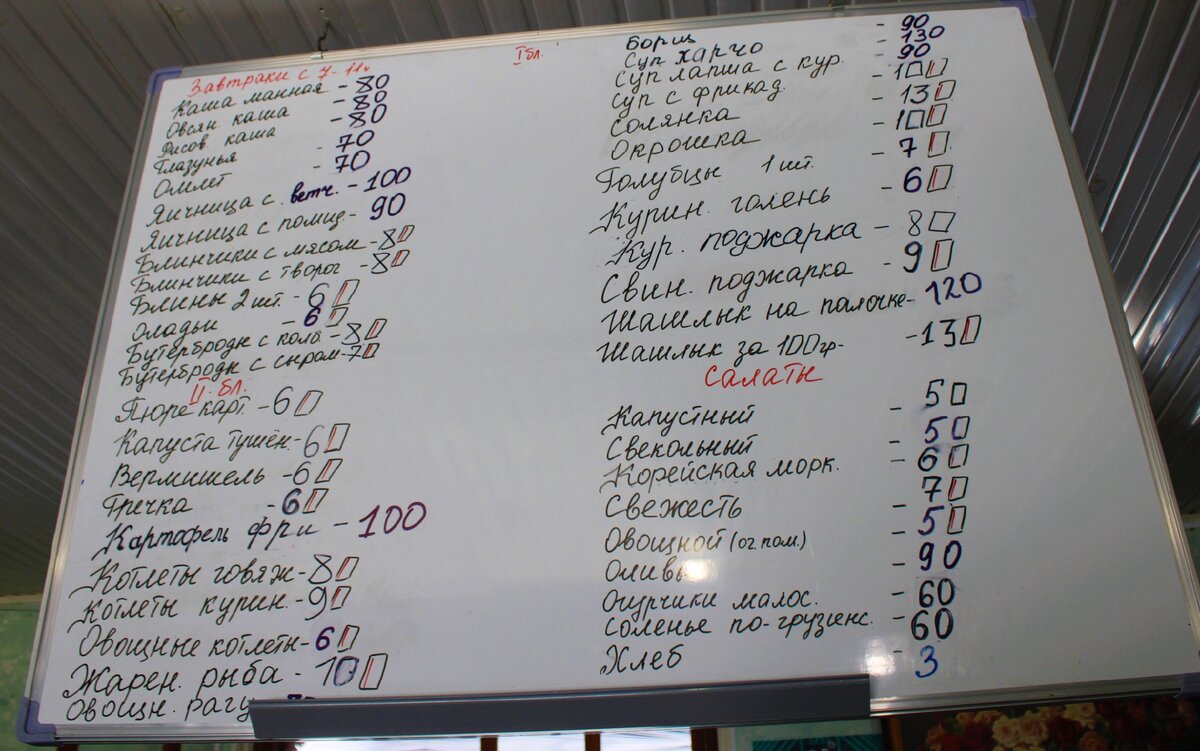 Завтраки с 7-11ч
Каша манная - 80
Овсян каша - 80
Рисов. каша - 80
Глазунья - 70
Омлет - 70
Яичница с ветч. - 100
Яичница с помид - 90
Блинчики с мясом - 80
Блинчики с творог - 80
Блины 2 шт. - 60
Оладьи - 60
Бутерброды с колб - 80
Бутерброды с сыром - 70
II бл.
Пюре карт - 60
Капуста тушён - 60
Вермишель - 60
Гречка - 60
Картофель фри - 100
Котлеты говяж - 80
Котлеты курин. - 90
Овощные котлеты - 60
Жарен. рыба - 100
Овощн. рагу
I бл.
Борщ - 90
Суп харчо - 130
Суп лапша с кур. - 90
Суп с фрикад. - 100
Солянка - 130
Окрошка - 100
Голубцы 1 шт. - 70
Курин. голень - 60
Кур. поджарка - 80
Свин. поджарка - 90
Шашлык на палочке - 120
Шашлык за 100гр - 130
Салаты
Капустный - 50
Свекольный - 50
Корейская морк. - 60
Свежесть - 70
Овощной (ог. пом.) - 50
- 90
Огурчики малос. - 60
Соленье по-грузинс. - 60
Хлеб - 3